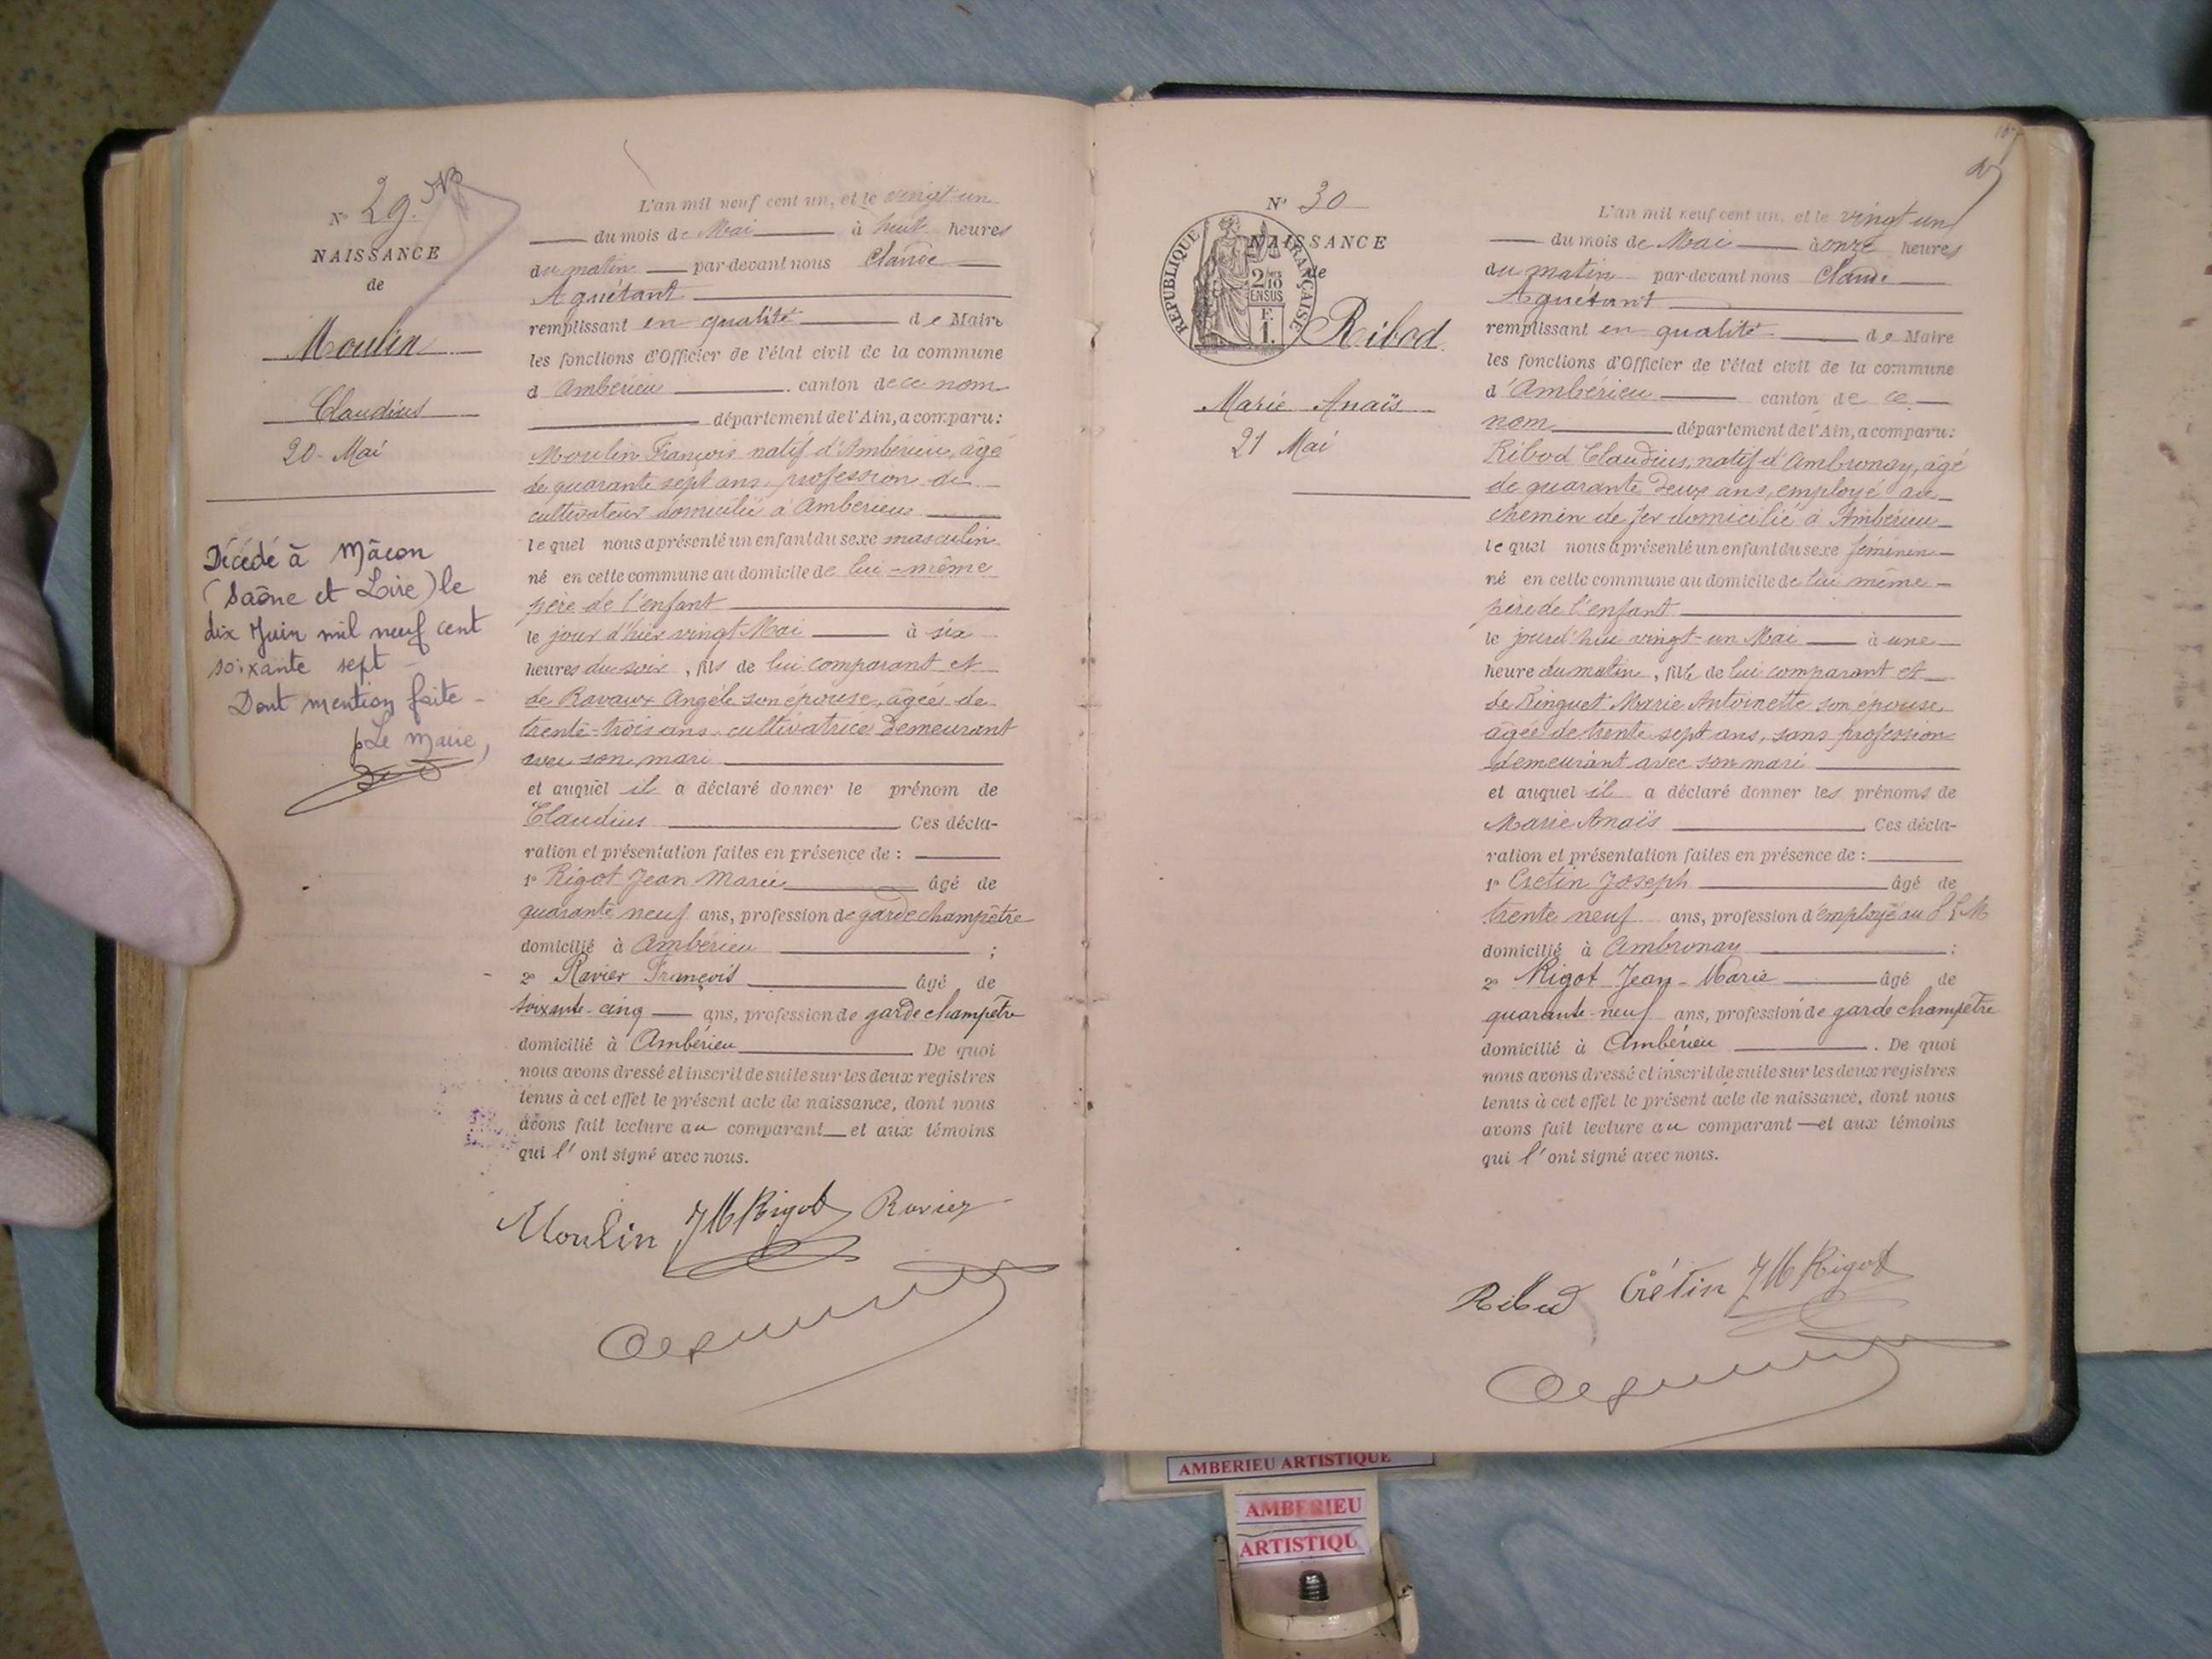 N° 29.
NAISSANCE
de
Moulin
Claudius
20 Mai
Décédé à Mâcon
(Saône et Loire) le
dix Juin mil neuf cent
soixante sept
Dont mention faite
Le Maire,
L'an mil neuf cent un, et le vingt un
du mois de Mai à huit heures
du matin par-devant nous Claude
Aguétant
remplissant en qualité de Maire
les fonctions d'Officier de l'état civil de la commune
d Ambérieu canton de ce nom
département de l'Ain, a comparu:
Moulin François natif d'Ambérieu, âgé
de quarante sept ans, profession de
cultivateur domicilié à Ambérieu
lequel nous a présenté un enfant du sexe masculin
né en cette commune au domicile de lui-même
père de l'enfant
le jour d'hier vingt Mai à six
heures du soir, fils de lui comparant et
de Ravaux Angèle son épouse, âgée de
trente-trois ans cultivatrice demeurant
avec son mari
et auquel il a déclaré donner le prénom de
Claudius Ces décla-
ration et présentation faites en présence de :
1° Rigot Jean Marie âgé de
quarante neuf ans, profession de garde champêtre
domicilié à Ambérieu ;
2° Ravier François âgé de
soixante-cinq ans, profession de garde champêtre
domicilié à Ambérieu De quoi
nous avons dressé et inscrit de suite sur les deux registres
tenus à cet effet le présent acte de naissance, dont nous
avons fait lecture au comparant et aux témoins
qui l'ont signé avec nous.
Moulin JM Rigot Ravier
N° 30
NAISSANCE
de
REPUBLIQUE FRANÇAISE
2/10 EN SUS
F. 1.
Ribod
Marie Anaïs
21 Mai
L'an mil neuf cent un, et le vingt un
du mois de Mai à onze heures
du matin par-devant nous Claude
Aguétant
remplissant en qualité de Maire
les fonctions d'Officier de l'état civil de la commune
d'Ambérieu canton de ce
nom département de l'Ain, a comparu:
Ribod Claudius, natif d'Ambronay, âgé
de quarante deux ans, employé au
chemin de fer domicilié à Ambérieu
lequel nous a présenté un enfant du sexe féminin
né en cette commune au domicile de lui même
père de l'enfant
le jourd'hui vingt-un Mai à une
heure du matin, fille de lui comparant et
de Ringuet Marie Antoinette son épouse
âgée de trente sept ans, sans profession
demeurant avec son mari
et auquel il a déclaré donner les prénoms de
Marie Anaïs Ces décla-
ration et présentation faites en présence de :
1° Cretin Joseph âgé de
trente neuf ans, profession d'employé au P L M
domicilié à Ambronay ;
2° Rigot Jean-Marie âgé de
quarante-neuf ans, profession de garde champêtre
domicilié à Ambérieu. De quoi
nous avons dressé et inscrit de suite sur les deux registres
tenus à cet effet le présent acte de naissance, dont nous
avons fait lecture au comparant et aux témoins
qui l'ont signé avec nous.
Ribod Crétin JM Rigot
AMBERIEU ARTISTIQUE
AMBERIEU
ARTISTIQU